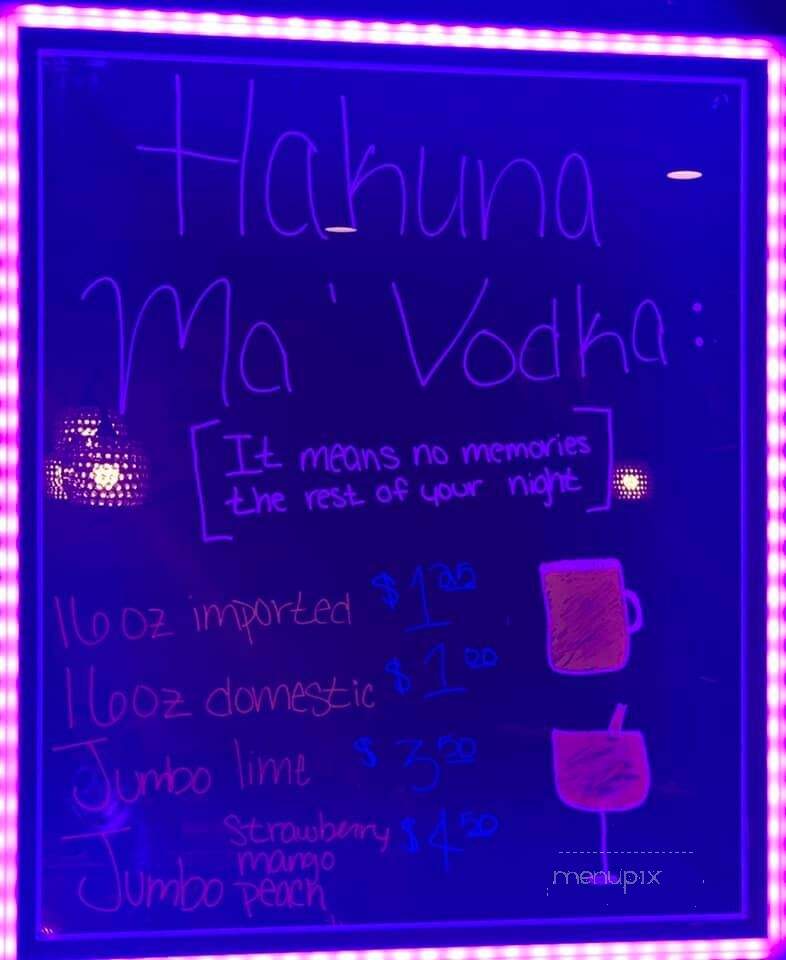 Hakuna
Ma' Vodka:
[It means no memories
the rest of your night]
16oz imported $1.25
16oz domestic $1.00
Jumbo lime $3.50
Jumbo strawberry $4.50
mango
peach
menupix